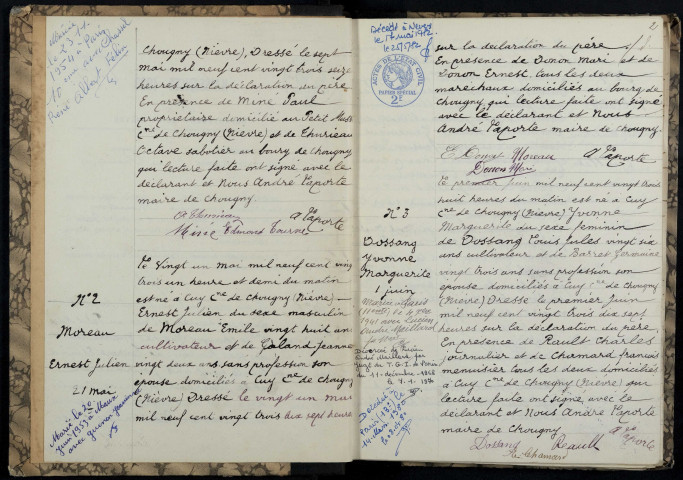 Mariée
le
1954 à Paris
10
René Albert Félin
Chougny (Nièvre), Dressé le sept
mai mil neuf cent vingt trois seize
heures sur la déclaration du père
En présence de Miné Paul
propriétaire domicilié au Petit
Cne de Chougny (Nièvre) et de Thurieau
Octave sabotier au bourg de Chougny
qui lecture faite ont signé avec le
déclarant et Nous André Laporte
maire de Chougny.
A Laporte
N° 2
Moreau
Ernest Julien
21 mai
Marié le
Le Vingt un mai mil neuf cent vingt
trois un heure et demi du matin
est né à Cuy Cne de Chougny (Nièvre)
Ernest Julien du sexe masculin
de Moreau Emile vingt huit ans
cultivateur et de Caland Jeanne
vingt deux ans sans profession son
épouse domiciliés à Cuy Cne de Chougny
(Nièvre) Dressé le vingt un mai
mil neuf cent vingt trois dix sept heures
Décédé à Nevers
le 17 mai 1972
2
sur la déclaration du père
En présence de Donon Mari et de
Donon Ernest tous les deux
maréchaux domiciliés au bourg de
Chougny qui lecture faite ont signé
avec le déclarant et Nous
André Laporte maire de Chougny.
ACTES DE L'ETAT CIVIL
PAPIER SPECIAL
2F
E. Donon Moreau A Laporte
Donon Mari
N° 3
Dossang
Yvonne
Marguerite
1 juin
Le premier juin mil neuf cent vingt trois
huit heures du matin est né à Cuy
Cne de Chougny (Nièvre) Yvonne
Marguerite du sexe féminin
de Dossang Louis Jules vingt six
ans cultivateur et de Barret Germaine
vingt trois ans sans profession son
épouse domiciliés à Cuy Cne de Chougny
(Nièvre) Dressé le premier juin
mil neuf cent vingt trois dix sept
heures sur la déclaration du père
En présence de Rault Charles
journalier et de Chamard françois
menuisier tous les deux domiciliés
à Cuy Cne de Chougny (Nièvre) qui
lecture faite ont signé avec le
déclarant et Nous André Laporte
maire de Chougny
Mariée à Paris
1941 avec Lucien
André Maillard
Décédée à
Dossang Rault A Laporte
Chamard